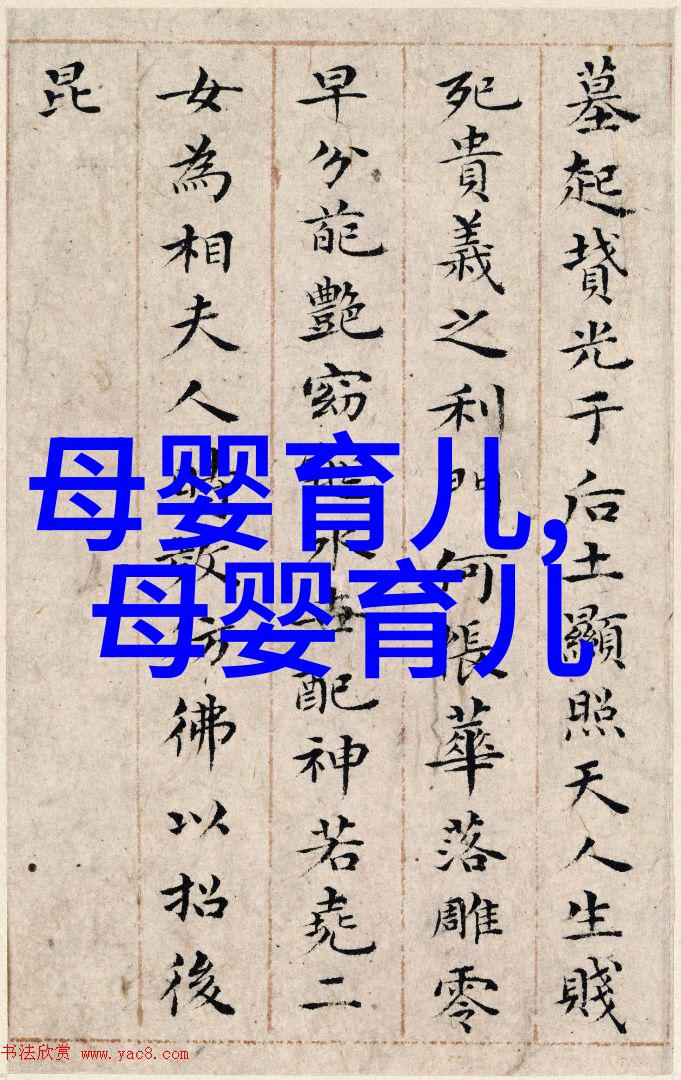 墓起墳光于后土顯照天人生賤
死貴義之利門何悵華落雕零
早分葩艷窈窕永世配神若堯二
女為相夫人時效仿彿以招後
昆
母婴育儿,
母婴育儿
书法欣赏 www.yac8.com